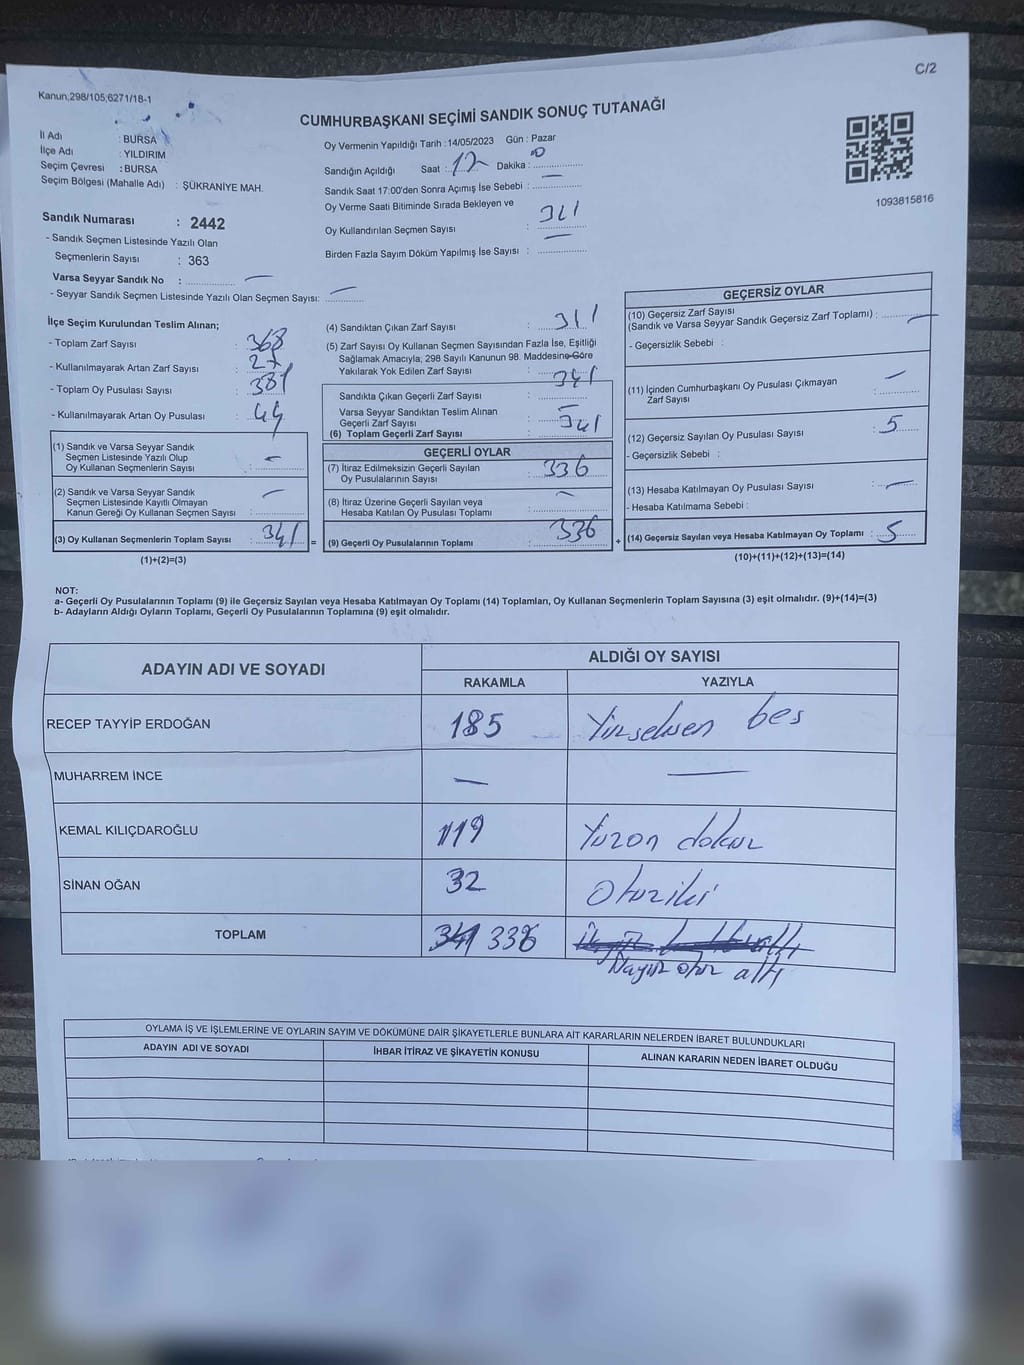 C/2
Kanun;298/105;6271/18-1
CUMHURBAŞKANI SEÇİMİ SANDIK SONUÇ TUTANAĞI
İl Adı : BURSA
İlçe Adı : YILDIRIM
Seçim Çevresi : BURSA
Seçim Bölgesi (Mahalle Adı) : ŞÜKRANİYE MAH.
Oy Vermenin Yapıldığı Tarih : 14/05/2023 Gün : Pazar
Sandığın Açıldığı Saat : 17 Dakika : 0
Sandık Saat 17:00'den Sonra Açımış İse Sebebi : —
Oy Verme Saati Bitiminde Sırada Bekleyen ve
Oy Kullandırılan Seçmen Sayısı : 341
Birden Fazla Sayım Döküm Yapılmış İse Sayısı : —
1093815816
Sandık Numarası : 2442
- Sandık Seçmen Listesinde Yazılı Olan
Seçmenlerin Sayısı : 363
Varsa Seyyar Sandık No : —
- Seyyar Sandık Seçmen Listesinde Yazılı Olan Seçmen Sayısı: —
İlçe Seçim Kurulundan Teslim Alınan;
- Toplam Zarf Sayısı : 368
- Kullanılmayarak Artan Zarf Sayısı : 27
- Toplam Oy Pusulası Sayısı : 381
- Kullanılmayarak Artan Oy Pusulası : 44
(1) Sandık ve Varsa Seyyar Sandık
Seçmen Listesinde Yazılı Olup
Oy Kullanan Seçmenlerin Sayısı : —
(2) Sandık ve Varsa Seyyar Sandık
Seçmen Listesinde Kayıtlı Olmayan
Kanun Gereği Oy Kullanan Seçmen Sayısı : —
(3) Oy Kullanan Seçmenlerin Toplam Sayısı : 341 =
(1)+(2)=(3)
(4) Sandıktan Çıkan Zarf Sayısı : 341
(5) Zarf Sayısı Oy Kullanan Seçmen Sayısından Fazla İse, Eşitliği
Sağlamak Amacıyla; 298 Sayılı Kanunun 98. Maddesine Göre
Yakılarak Yok Edilen Zarf Sayısı : —
Sandıkta Çıkan Geçerli Zarf Sayısı : 341
Varsa Seyyar Sandıktan Teslim Alınan
Geçerli Zarf Sayısı : —
(6) Toplam Geçerli Zarf Sayısı : 341
GEÇERLİ OYLAR
(7) İtiraz Edilmeksizin Geçerli Sayılan
Oy Pusulalarının Sayısı : 336
(8) İtiraz Üzerine Geçerli Sayılan veya
Hesaba Katılan Oy Pusulası Toplamı : —
(9) Geçerli Oy Pusulalarının Toplamı : 336 +
GEÇERSİZ OYLAR
(10) Geçersiz Zarf Sayısı
(Sandık ve Varsa Seyyar Sandık Geçersiz Zarf Toplamı) : —
- Geçersizlik Sebebi :
(11) İçinden Cumhurbaşkanı Oy Pusulası Çıkmayan
Zarf Sayısı : —
(12) Geçersiz Sayılan Oy Pusulası Sayısı : 5
- Geçersizlik Sebebi :
(13) Hesaba Katılmayan Oy Pusulası Sayısı : —
- Hesaba Katılmama Sebebi :
(14) Geçersiz Sayılan veya Hesaba Katılmayan Oy Toplamı : 5
(10)+(11)+(12)+(13)=(14)
NOT:
a- Geçerli Oy Pusulalarının Toplamı (9) ile Geçersiz Sayılan veya Hesaba Katılmayan Oy Toplamı (14) Toplamları, Oy Kullanan Seçmenlerin Toplam Sayısına (3) eşit olmalıdır. (9)+(14)=(3)
b- Adayların Aldığı Oyların Toplamı, Geçerli Oy Pusulalarının Toplamına (9) eşit olmalıdır.
ADAYIN ADI VE SOYADI
ALDIĞI OY SAYISI
RAKAMLA YAZIYLA
RECEP TAYYİP ERDOĞAN 185 Yüzseksen beş
MUHARREM İNCE — —
KEMAL KILIÇDAROĞLU 119 Yüzon dokuz
SİNAN OĞAN 32 Otuziki
TOPLAM 341 336
üçyüz otuz altı
OYLAMA İŞ VE İŞLEMLERİNE VE OYLARIN SAYIM VE DÖKÜMÜNE DAİR ŞİKAYETLERLE BUNLARA AİT KARARLARIN NELERDEN İBARET BULUNDUKLARI
ADAYIN ADI VE SOYADI İHBAR İTİRAZ VE ŞİKAYETİN KONUSU ALINAN KARARIN NEDEN İBARET OLDUĞU